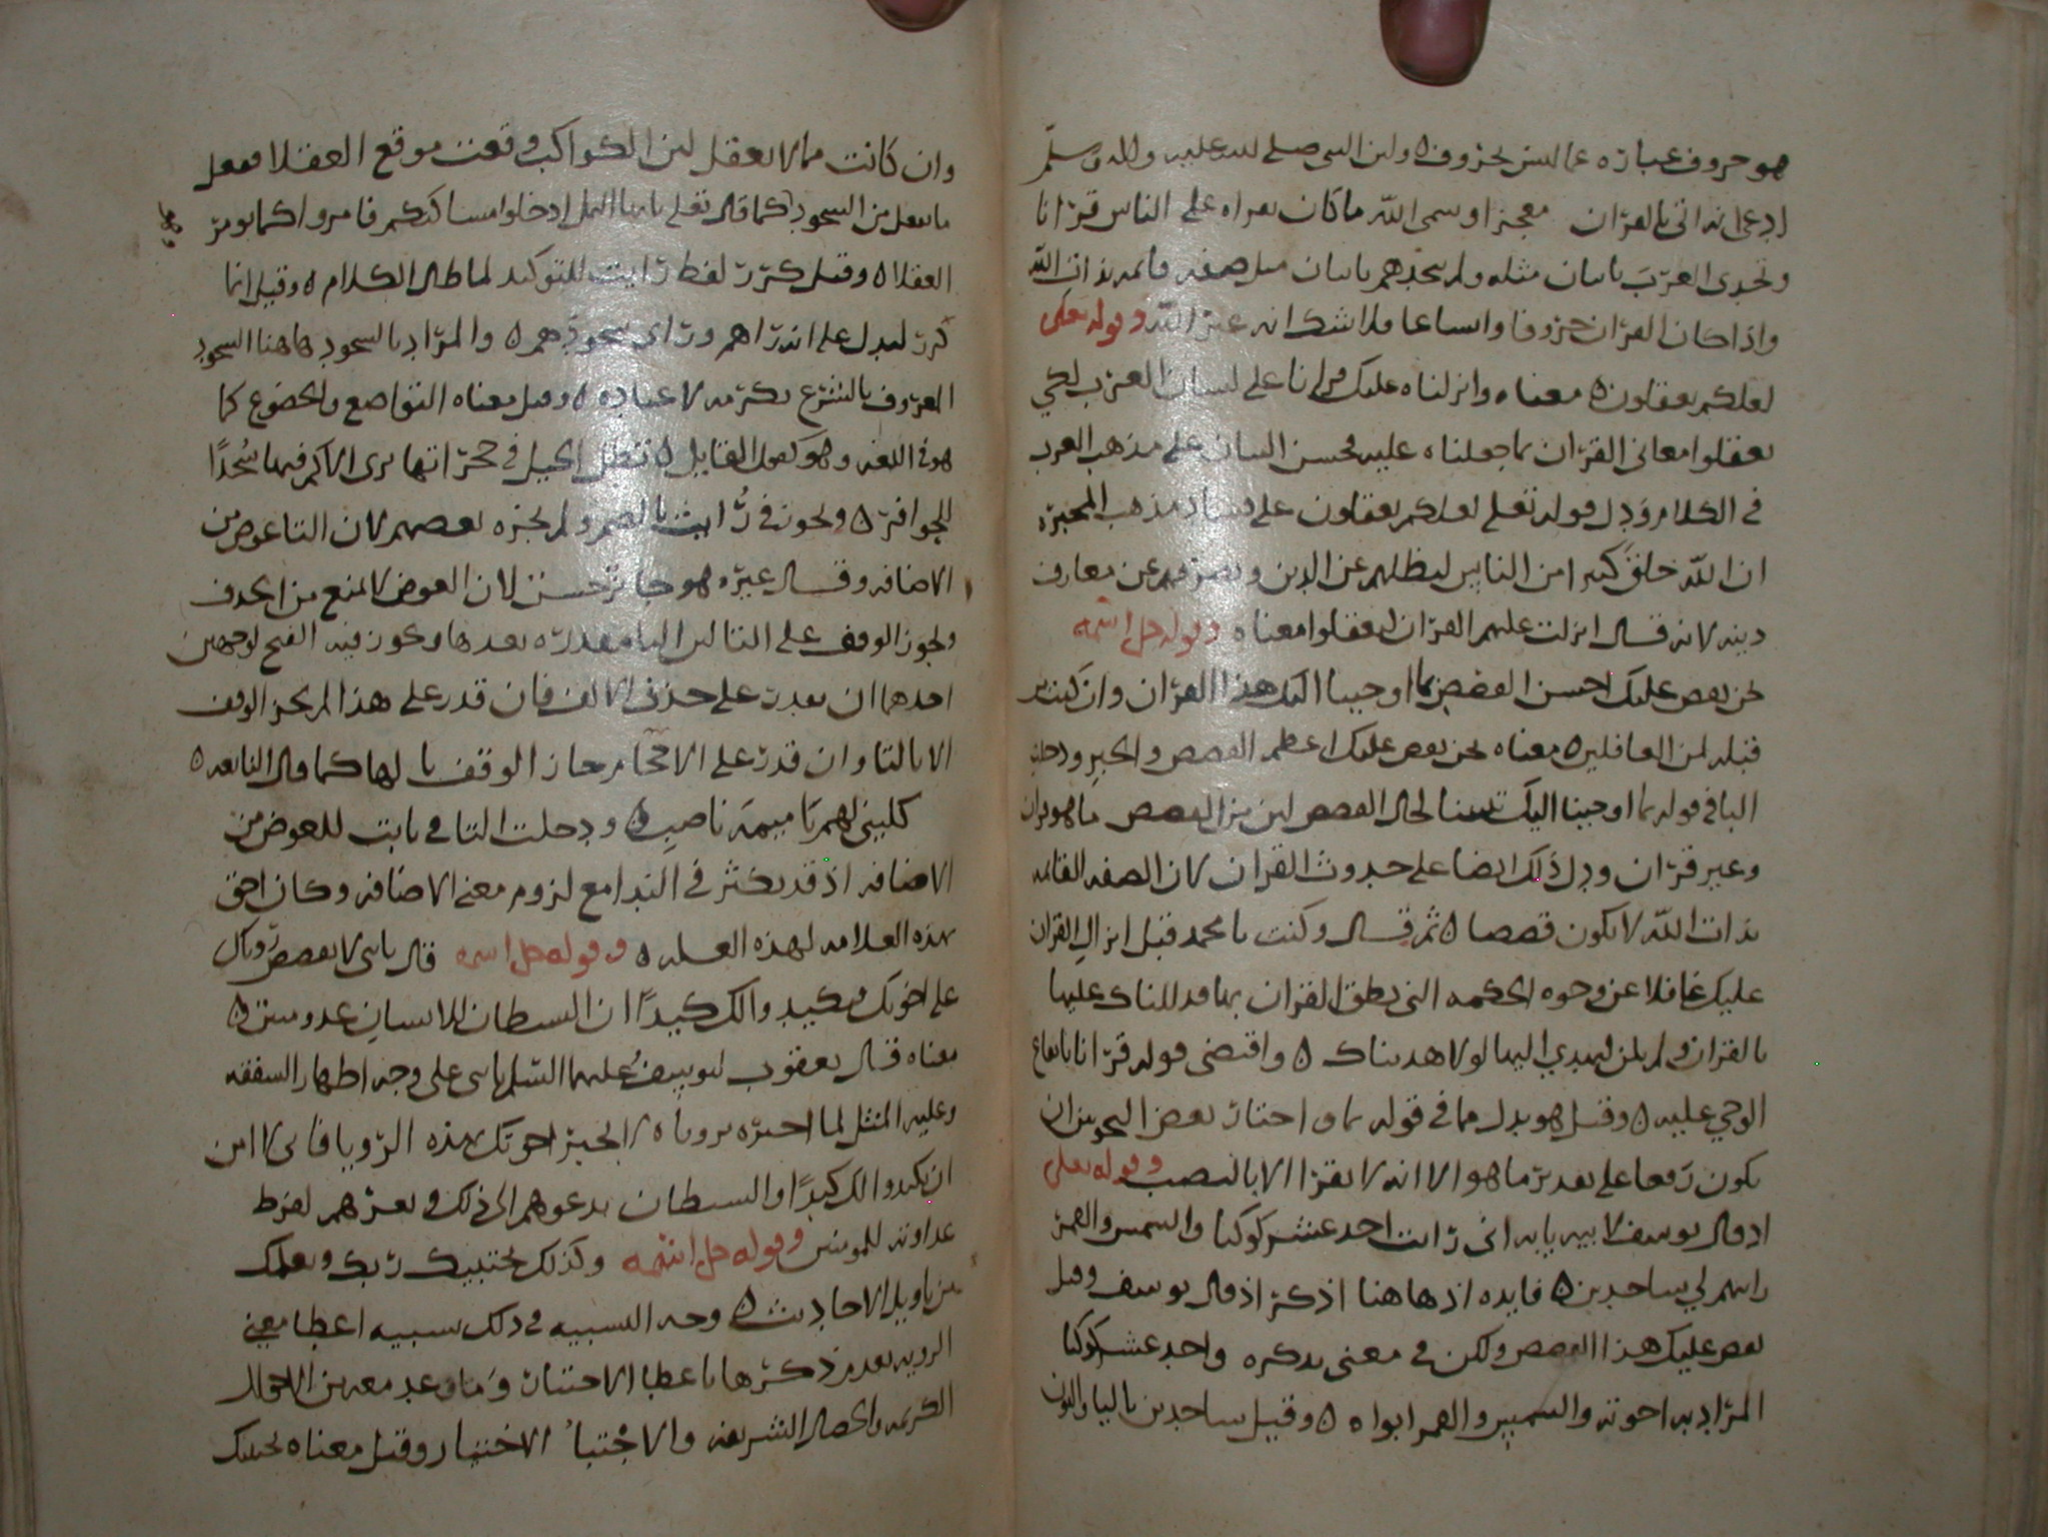 هو حروف عبارة عما ليس بحروف ٥ ولان النبي صلى الله عليه واله وسلم
ادعى انه اتى بالقرآن معجزا وسمى الله ما كان يقراه على الناس قرآنا
وتحدى العرب باتيان مثله ولم يتحدهم باتيان مثل صفه قائمه بذات الله
واذا كان القران حروفا واتساعا فلا شك انه غير الله وقوله تعلى
لعلكم تعقلون ٥ معناه وانزلناه عليك قرانا على لسان العرب لكي
تعقلوا معاني القرآن بما جعلناه عليه بحسن البيان على مذهب العرب
في الكلام ودل قوله تعلى لعلكم تعقلون على فساد مذهب المجبرة
ان الله خلق كثيرا من الناس ليظلهم عن الدين ويصرفهم عن معارف
دينه لانه قال انزلت عليهم القرآن ليعقلوا معناه وقوله جل اسمه
نحن نقص عليك احسن القصص بما اوحينا اليك هذا القرآن وان كنت من
قبله لمن الغافلين ٥ معناه نحن نقص عليك اعظم القصص والخبر ودخلت
البا في قوله بما اوحينا اليك تبيينا لحال القصص لان من القصص ما هو قران
وغير قرآن ودل ذلك ايضا على حدوث القران لان الصفه القائمه
بذات الله لا تكون قصصا ٥ ثم قال وكنت يا محمد قبل انزال القران
عليك غافلا عن وجوه الحكمه التي نطق القران بها فدللناك عليها
بالقران ولم تكن لتهتدي اليها لولا هديناك ٥ واقتضى قوله قرآنا بايقاع
الوحي عليه ٥ وقيل هو بدل مما في قوله بما واختار بعض النحويين ان
يكون رفعا على تقدير ما هو الا انه لا يقرا الا بالنصب وقوله تعلى
اذ قال يوسف لابيه يابه اني رايت احد عشر كوكبا والشمس والقمر
رايتهم لي ساجدين ٥ فايده اذ هاهنا اذكر اذ قال يوسف وقيل
نقص عليك هذا القصص ولكن في معنى نذكره واحد عشر كوكبا
المراد به اخوته والشمس والقمر ابواه ٥ وقيل ساجدين باليا والنون
وان كانت مما لا يعقل لان الكواكب وقعت موقع العقلا ففعل
ما يفعل من السجود كما قال تعلى يا ايها النمل ادخلوا مساكنكم فامروا كما يومر
العقلا ٥ وقيل كرر لفظ رايت للتوكيد لما طال الكلام ٥ وقيل انما
كرر ليدل على انه رآهم ورآى سجودهم ٥ والمراد بالسجود هاهنا السجود
المعروف بالشرع تكرمه لا عباده ٥ وقيل معناه التواضع والخضوع كما
هو في اللغه وهو كقول القايل ٥ تظل الخيل في حجراتها ترى الاكم فيها سُجّدًا
للحوافر ٥ ويجوز في يا ابت بالضم ولم يجزه بعضهم لان التا عوض من
الاضافه وقال غيره هو جائز حسن لان العوض لا يمنع من الحذف
ويجوز الوقف على التا لان اليا مقدره بعدها ويجوز فيه الفتح لوجهين
احدهما ان يقدر على حذف الالف فان قدر على هذا لم يجز الوقف
الا بالتا وان قدر على الاقحام جاز الوقف بالها كما قال النابغه ٥
كليني لهم يا اميمه ناصب ٥ ودخلت التا في يا ابت للعوض من
الاضافه اذ قد يكثر في الندا مع لزوم معنى الاضافه وكان احق
بهذه العلامه لهذه العله ٥ وقوله جل اسمه قال يابني لا تقصص رؤياك
على اخوتك فيكيدوا لك كيدًا ان الشيطان للانسان عدو مبين ٥
معناه قال يعقوب ليوسف عليهما السلم يابني على وجه اظهار الشفقه
وعليه المثل لما اخبره برؤياه لا تخبر اخوتك بهذه الرويا فاني لا امن
ان يكيدوا لك كيدًا والشيطان يدعوهم الى ذلك ويغرهم لفرط
عداوته للمومنين وقوله جل اسمه وكذلك يجتبيك ربك ويعلمك
من تاويل الاحاديث ٥ وجه التشبيه في ذلك تشبيه اعطا معنى
الرويه بعد من ذكرها باعطا الاختيار وما وعد معه من الاحوال
الكريمه والخصال الشريفه والاجتباء الاختيار وقيل معناه يحببك